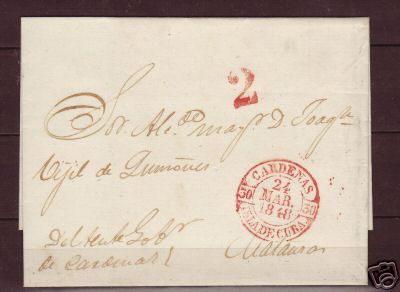 2
Sor. Alc.de mayr. D. Joaqn.
Vijil de Quiñones
CARDENAS
24
MAR.
1848
30 30
ISLA DE CUBA
Del tente. Gobr.
de Cardenas
Matanzas